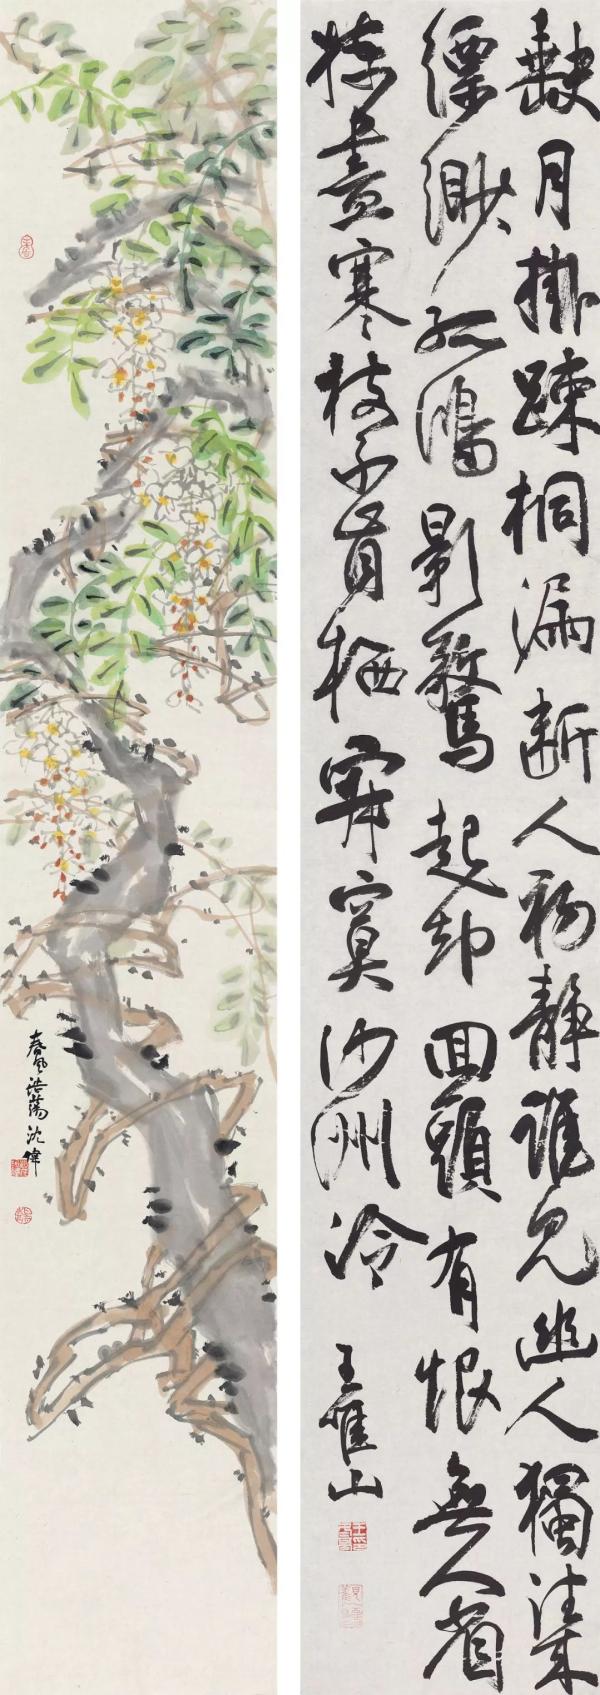 缺月掛疎桐漏断人初靜誰見幽人獨往來
縹渺孤鴻影驚起却回頭有恨無人省
揀盡寒枝不肯栖寂寞沙州冷
王隺山
春風浩蕩沈偉